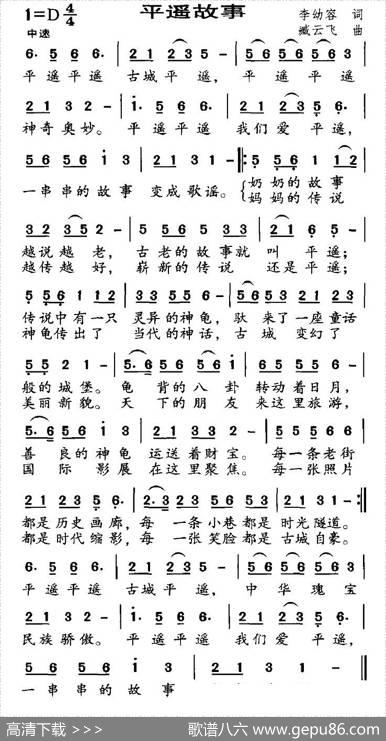 平遥故事
1=D 4/4
中速
李幼容 词
臧云飞 曲
6· 5 6· 5 | 2 1 2 3 5 - | 5 6 5 3 5 6 5 3
平遥平遥 古城平遥， 平遥 平遥
2 1 3 2 - | 1· 5 6 5 6· | 2 1 2 3 5 6·
神奇奥妙。 平遥平遥 我们爱平遥，
5 6 5 6 1 3 | 2 1 3 1 - |: 5 5 6 1 1 2
一串串的故事 变成歌谣。
奶奶的故事
妈妈的传说
3 2 3 5 2 - | 5 5 5 6 5 5 3 | 2 1 6 5 -
越说越 老， 古老的故事就 叫 平遥；
越传越 好， 崭新的传说 还是平遥；
5 5 6 1 1 2 | 3 3 5 5 6 - | 5 6 5 3 0 5 3 5
传说中有一只 灵异的神龟， 驮 来了一座童话
神龟传出了 当代的神话， 古 城 变幻了
5 5 2 1 - | 5· 6 5 5 6 1 | 6 5 5 5 6 -
般的城堡。 龟 背的八卦 转动着日月，
美丽新貌。 天 下的朋友 来这里旅游，
5· 6 5 6 5 3 | 2 3 3 0 2 - | 5 5 5 6 6
善 良的神龟 运送着财宝。 每一条老街
国 际 影展 在这里聚焦。 每一张照片
2 1 2 3 5 6· | 2· 3 2 3 5 6 5 3 | 2 1 2 3 1 - :|
都是历史画廊，每 一条小巷都是 时光隧道。
都是时代缩影，每 一张笑脸都是 古城自豪。
6· 5 6· 5 | 2 1 2 3 5 - | 5 6 5 3 5 6 5 3
平遥平遥 古城平遥， 中华瑰宝
2 1 3 2 - | 1· 5 6 5 6· | 2 1 2 3 5 6·
民族骄傲。 平遥平遥 我们爱平遥，
5 6 5 6 1 3 |
一串串的故事
高清下载 >>>
歌谱八六 www.gepu86.com